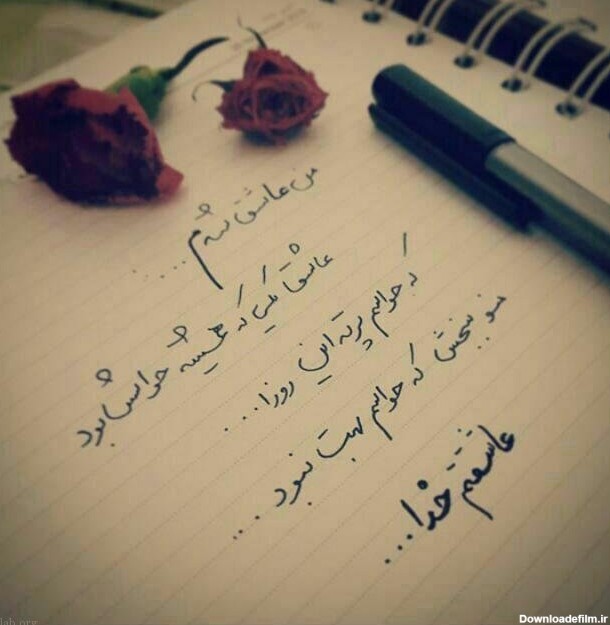 من عاشق شدم ....
عاشق یکی که همیشه حواسش بود
که حواسم پرته این روزا ....
منو ببخش که حواسم بهت نبود ...
عاشقتم خدا ...
Downloadefilm.ir
lab.org